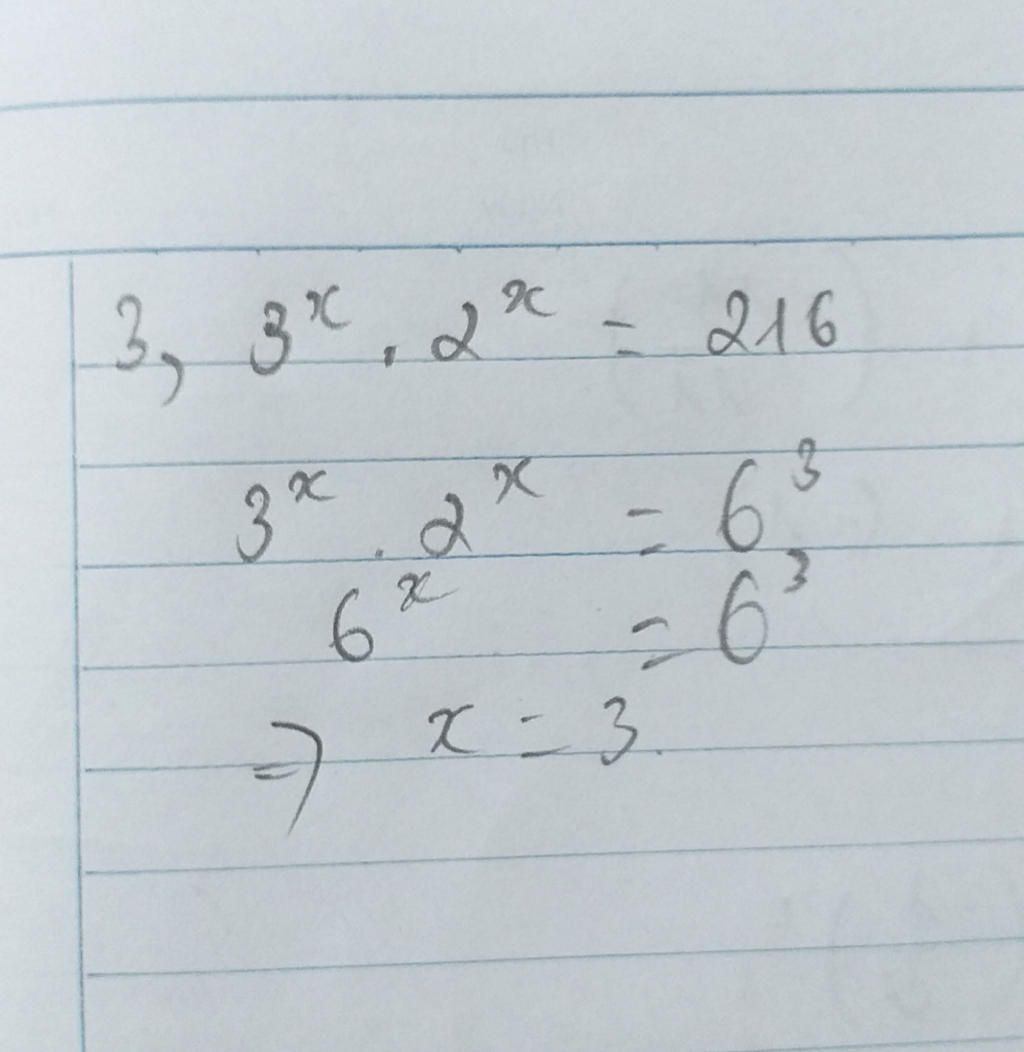 3, 3ˣ . 2ˣ = 216
3ˣ . 2ˣ = 6³
6ˣ = 6³
⇒ x = 3.